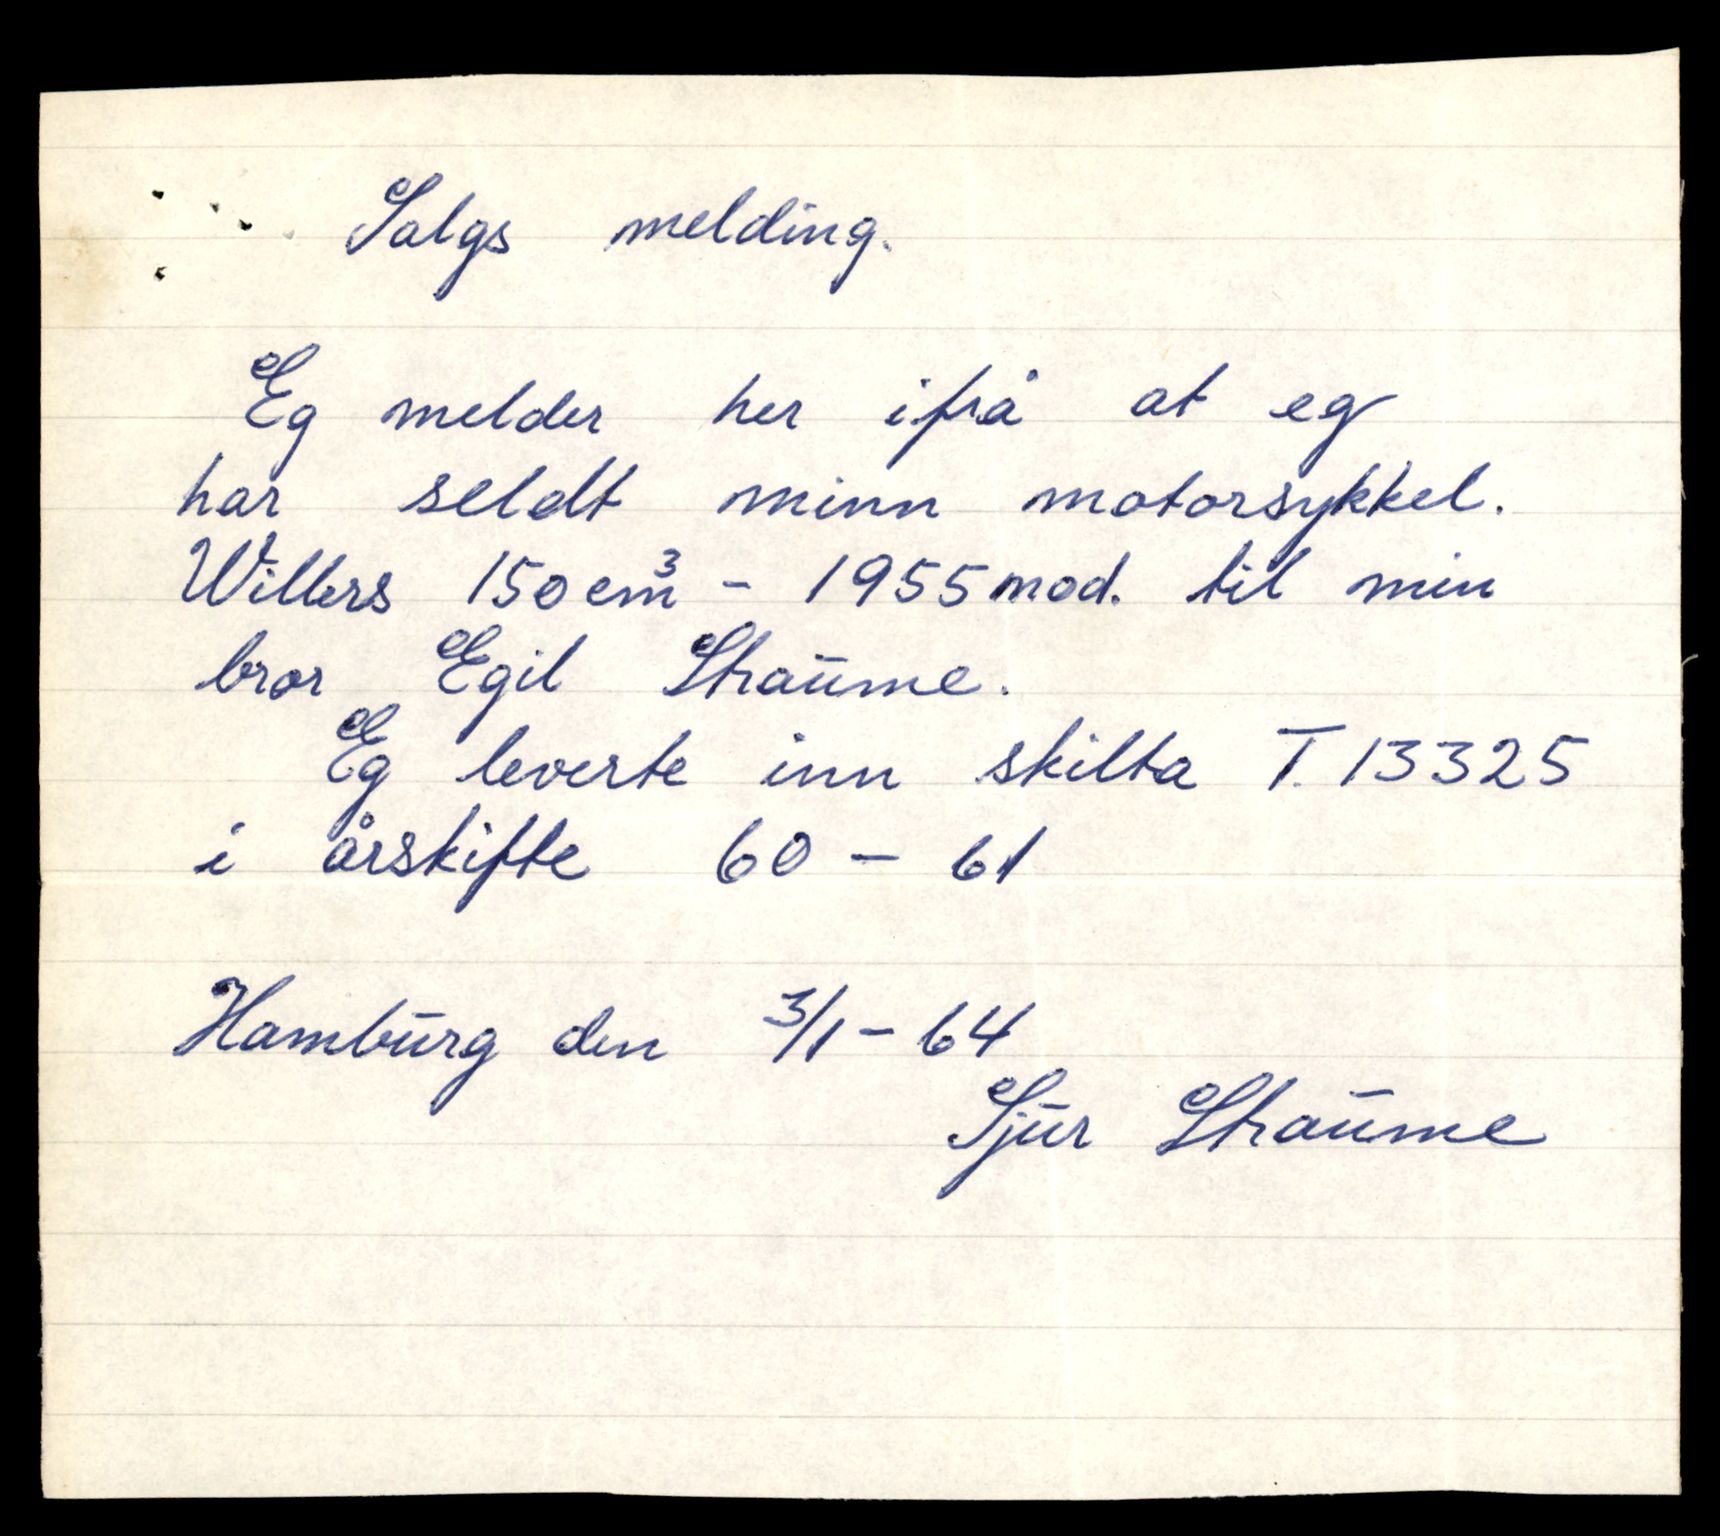 Salgs melding.
Eg melder her ifrå at eg
har seldt minn motorsykkel.
Willers 150 cm³ - 1955 mod. til min
bror Egil Straume.
Eg leverte inn skilta T. 13325
i årskifte 60 - 61
Hamburg den 3/1 - 64
Sjur Straume